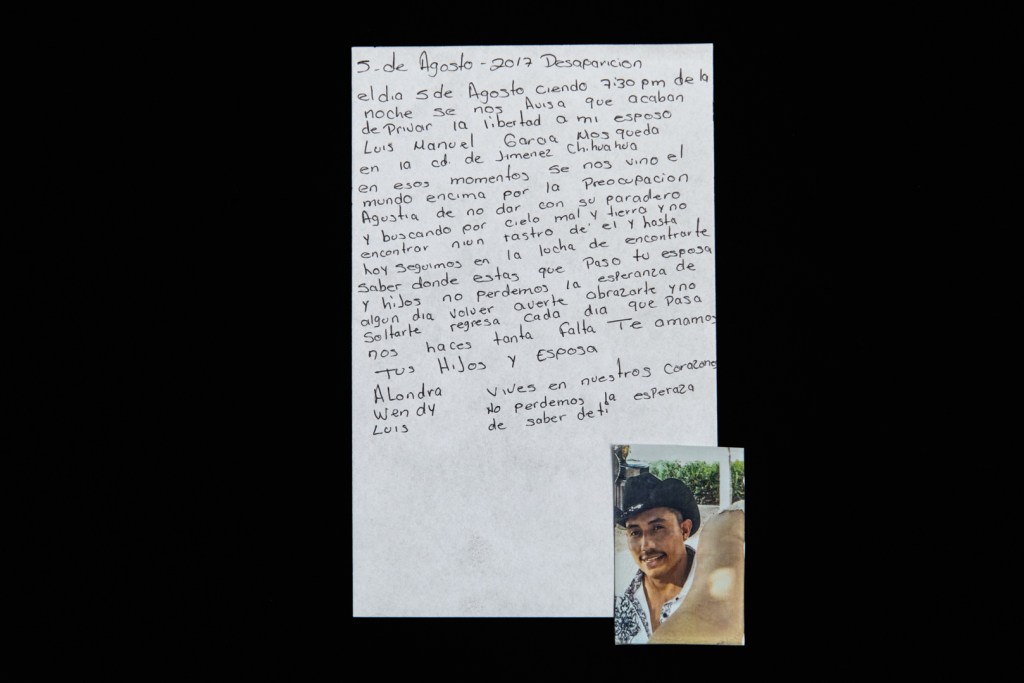 5-de Agosto - 2017 Desaparicion
el dia 5 de Agosto ciendo 7:30 pm de la
noche se nos Avisa que acaban
de Privar la libertad a mi esposo
Luis Manuel Garcia Mosqueda
en la cd. de Jimenez Chihuahua
en esos momentos se nos vino el
mundo encima por la Preocupacion
Agustia de no dar con su paradero
y buscando por cielo mal y tierra y no
encontrar niun rastro de el y hasta
hoy seguimos en la lucha de encontrarte
saber donde estas que Paso tu esposa
y hijos no perdemos la esperanza de
algun dia volver averte abrazarte y no
Soltarte regresa cada dia que Pasa
nos haces tanta falta Te amamos
Tus Hijos y Esposa
ALondra Vives en nuestros Corazones
Wendy No perdemos la esperaza
Luis de saber de ti